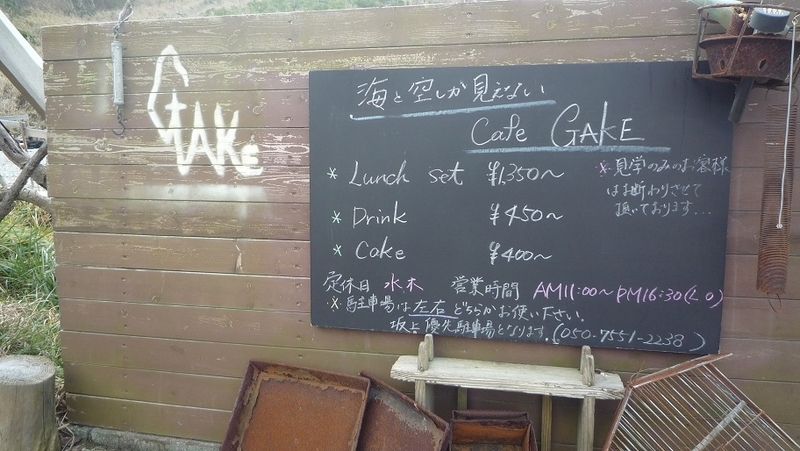 GAKE
海と空しか見えない
Cafe GAKE
* Lunch set ¥1,350〜
* Drink ¥450〜
* Cake ¥400〜
※見学のみのお客様
はお断わりさせて
頂いております...
定休日 水木 営業時間 AM11:00〜PM16:30(L.O)
※駐車場は左右どちらかお使い下さい。
坂上優先駐車場となります。(050-7551-2238)